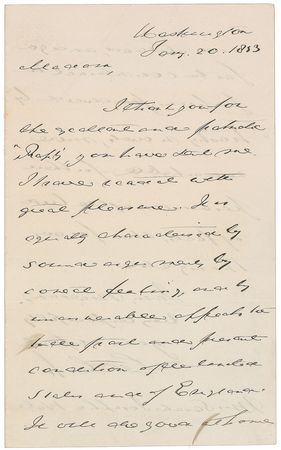 Washington
Jany. 20. 1883
Madam
I thank you for
the excellent and patriotic
"Reply" you have sent me.
I have read it with
great pleasure. It is
equally characterized by
sound argument, by
correct feeling, and by
unanswerable appeals to
the past and present
condition of the United
States and of England
It will do good at home